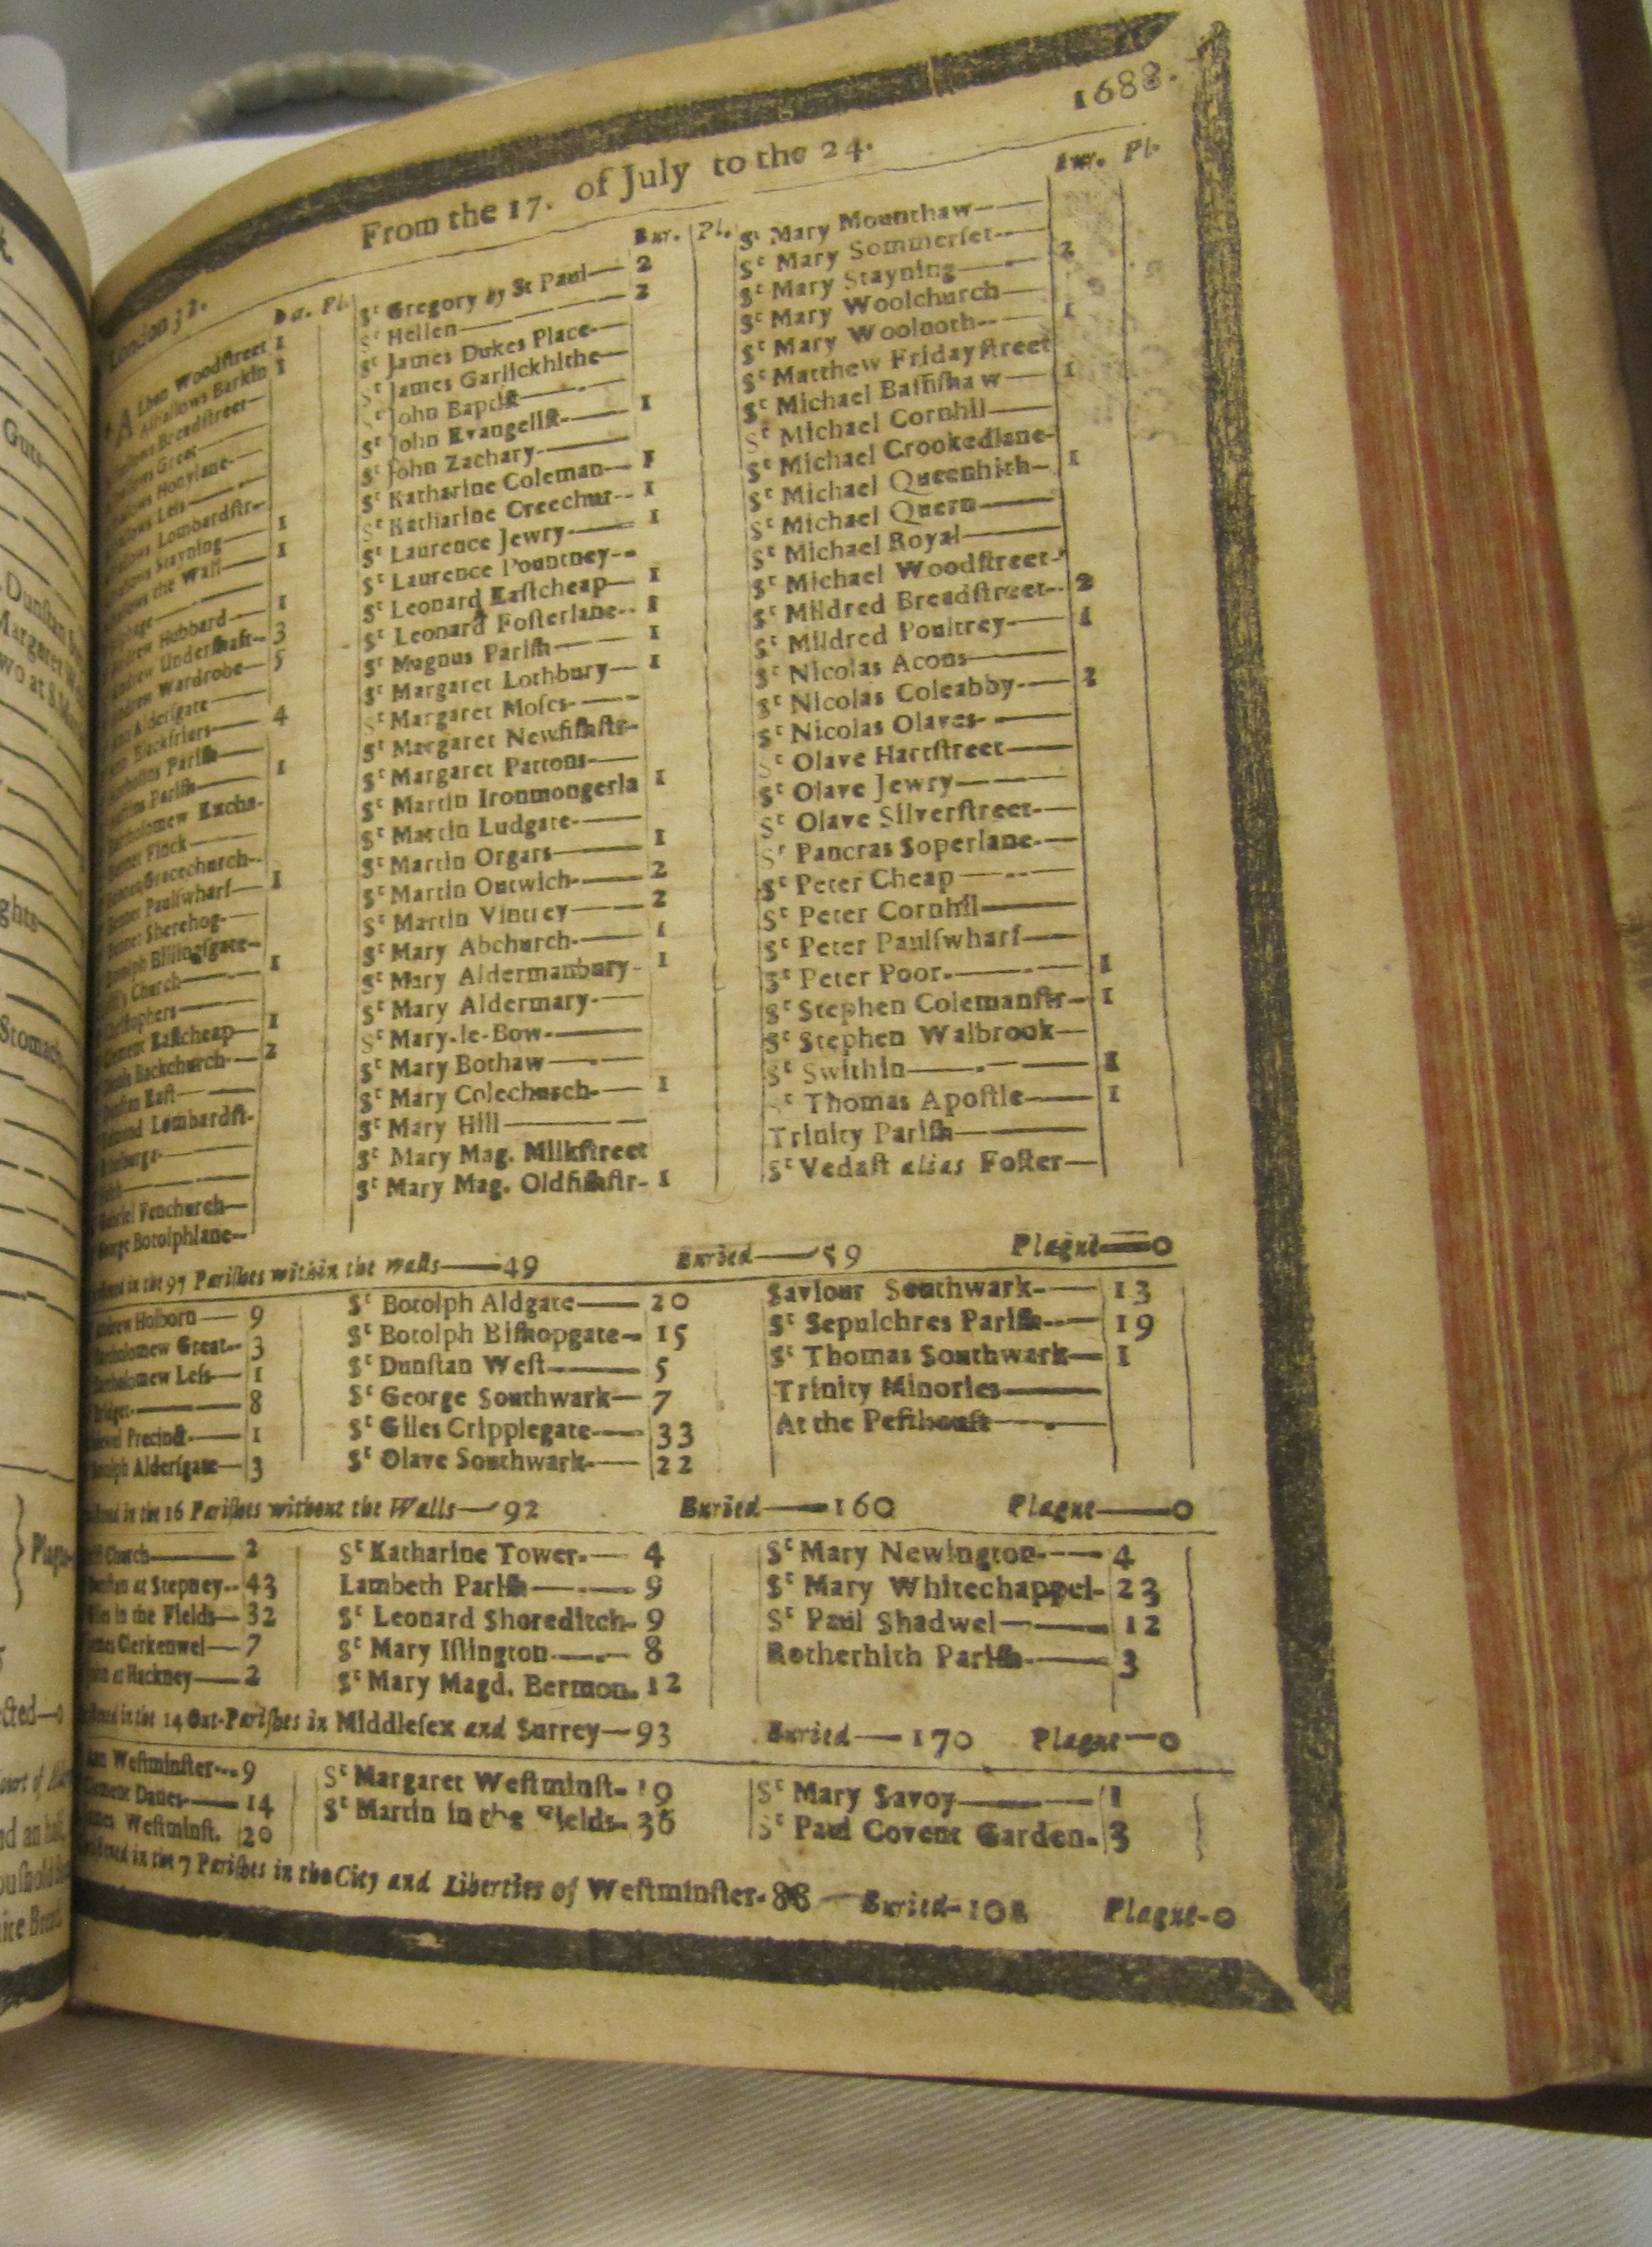 London 32. From the 17. of July to the 24. 1688.
Bur. Pl.
A Lban Woodſtreet 1
Alhallows Barkin 1
Breadſtreet—
Great—
Honylane—
Leſs—
Lombardſtr—
Stayning— 1
the Wall— 1
Hubbard— 1
Underſhaft— 3
Wardrobe— 5
Alderſgate—
Blackfriars— 4
Pariſh—
Pariſh— 1
Excha-
Finck—
Gracechurch—
Paulſwharf— 1
Sherehog—
Billingſgate—
Church— 1
Eaſtcheap— 1
Backchurch— 2
Eaſt—
Lombardſt-
Fenchurch—
Botolphlane—
Bur. Pl.
St Gregory by St Paul— 2
St Hellen— 2
St James Dukes Place—
St James Garlickhithe—
St John Baptiſt—
St John Evangeliſt— 1
St John Zachary—
St Katharine Coleman— 1
St Katharine Creechur-- 1
St Laurence Jewry— 1
St Laurence Pountney--
St Leonard Eaſtcheap— 1
St Leonard Foſterlane-- 1
St Magnus Pariſh— 1
St Margaret Lothbury— 1
St Margaret Moſes—
St Margaret Newfiſhſtr-
St Margaret Pattons—
St Martin Ironmongerla 1
St Martin Ludgate—
St Martin Orgars— 1
St Martin Outwich— 2
St Martin Vintrey— 2
St Mary Abchurch— 1
St Mary Aldermanbury- 1
St Mary Aldermary—
St Mary-le-Bow—
St Mary Bothaw—
St Mary Colechurch— 1
St Mary Hill—
St Mary Mag. Milkſtreet
St Mary Mag. Oldfiſhſtr- 1
Bur. Pl.
St Mary Mounthaw—
St Mary Sommerſet—
St Mary Stayning— 2
St Mary Woolchurch—
St Mary Woolnoth— 1
St Matthew Fridayſtreet
St Michael Baſſiſhaw— 1
St Michael Cornhil—
St Michael Crookedlane-
St Michael Queenhith— 1
St Michael Quern—
St Michael Royal—
St Michael Woodſtreet-
St Mildred Breadſtreet-- 2
St Mildred Poultrey— 1
St Nicolas Acons—
St Nicolas Coleabby— 2
St Nicolas Olaves—
St Olave Hartſtreet—
St Olave Jewry—
St Olave Silverſtreet—
St Pancras Soperlane—
St Peter Cheap—
St Peter Cornhil—
St Peter Paulſwharf—
St Peter Poor— 1
St Stephen Colemanſtr— 1
St Stephen Walbrook—
St Swithin— 1
St Thomas Apoſtle— 1
Trinity Pariſh—
St Vedaſt alias Foſter—
in the 97 Pariſhes within the walls—49 Buried—59 Plague—0
Andrew Holborn— 9
Bartholomew Great-- 3
Bartholomew Leſs— 1
Bridget— 8
Precinct— 1
Alderſgate— 3
St Botolph Aldgate— 20
St Botolph Biſhopgate— 15
St Dunſtan Weſt— 5
St George Southwark— 7
St Giles Cripplegate— 33
St Olave Southwark— 22
Saviour Southwark— 13
St Sepulchres Pariſh— 19
St Thomas Southwark— 1
Trinity Minories—
At the Peſthouſe—
in the 16 Pariſhes without the Walls—92 Buried—160 Plague—0
Church— 2
at Stepney-- 43
in the Fields— 32
Clerkenwel— 7
at Hackney— 2
St Katharine Tower— 4
Lambeth Pariſh— 9
St Leonard Shoreditch- 9
St Mary Iſlington— 8
St Mary Magd. Bermon. 12
St Mary Newington— 4
St Mary Whitechappel- 23
St Paul Shadwel— 12
Rotherhith Pariſh— 3
in the 14 Out-Pariſhes in Middleſex and Surrey—93 Buried—170 Plague—0
Weſtminſter--- 9
Clement Danes— 14
James Weſtminſt. 20
St Margaret Weſtminſt- 19
St Martin in the Fields- 36
St Mary Savoy— 1
St Paul Covent Garden- 3
in the 7 Pariſhes in the City and Liberties of Weſtminſter-88 Buried-102 Plague-0